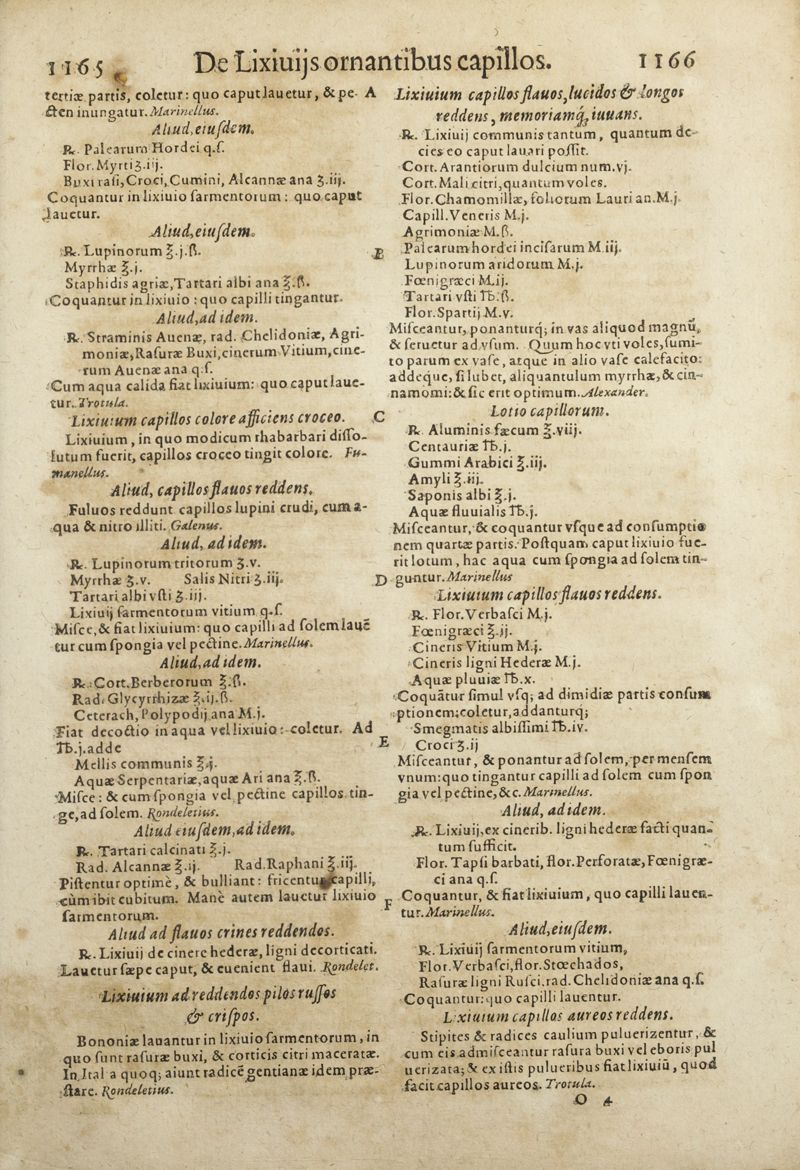 1165 De Lixiuijs ornantibus capillos. 1166
tertiæ partis, coletur: quo caput lauetur, & pe- A
cten inungatur. Marinellus.
Aliud, eiusdem.
℞. Palearum Hordei q.ſ.
Flor. Myrti ʒ.iij.
Buxi raſi, Croci, Cumini, Alcannæ ana ʒ.iij.
Coquantur in lixiuio ſarmentorum: quo caput
lauetur.
Aliud, eiuſdem.
℞. Lupinorum ℥.j.ß.
Myrrhæ ℥.j.
Staphidis agriæ, Tartari albi ana ℥.ß.
Coquantur in lixiuio: quo capilli tingantur.
Aliud, ad idem.
℞. Straminis Auenæ, rad. Chelidoniæ, Agri-
moniæ, Raſuræ Buxi, cinerum Vitium, cine-
rum Auenæ ana q.ſ.
Cum aqua calida fiat lixiuium: quo caput laue-
tur. Trotula.
Lixiuium capillos colore afficiens croceo. C
Lixiuium, in quo modicum rhabarbari diſſo-
lutum fuerit, capillos croceo tingit colore. Fu-
manellus.
Aliud, capillos flauos reddens.
Fuluos reddunt capillos lupini crudi, cum a-
qua & nitro illiti. Galenus.
Aliud, ad idem.
℞. Lupinorum tritorum ʒ.v.
Myrrhæ ʒ.v. Salis Nitri ʒ.iij.
Tartari albi vſti ʒ.iij.
Lixiuij ſarmentorum vitium q.ſ.
Miſce, & fiat lixiuium: quo capilli ad ſolem lauē
tur cum ſpongia vel pectine. Marinellus.
Aliud, ad idem.
℞. Cort. Berberorum ℥.ß.
Rad. Glycyrrhizæ ℥.ij.ß.
Ceterach, Polypodij ana M.j.
Fiat decoctio in aqua vel lixiuio: coletur. Ad
℔.j. adde E
Mellis communis ℥.j.
Aquæ Serpentariæ, aquæ Ari ana ℥.ß.
Miſce: & cum ſpongia vel pectine capillos tin-
ge, ad ſolem. Rondeletius.
Aliud eiuſdem, ad idem.
℞. Tartari calcinati ℥.j.
Rad. Alcannæ ℥.ij. Rad. Raphani ℥.iij.
Piſtentur optimè, & bulliant: fricentur capilli,
cùm ibit cubitum. Manè autem lauetur lixiuio F
ſarmentorum.
Aliud ad flauos crines reddendos.
℞. Lixiuij de cinere hederæ, ligni decorticati.
Lauetur ſæpe caput, & euenient flaui. Rondelet.
Lixiuium ad reddendos pilos ruſſos
& criſpos.
Bononiæ lauantur in lixiuio ſarmentorum, in
quo ſunt raſuræ buxi, & corticis citri maceratæ.
In Ital a quoq; aiunt radicē gentianæ idem præ-
ſtare. Rondeletius.
Lixiuium capillos flauos, lucidos & longos
reddens, memoriamq; iuuans.
℞. Lixiuij communis tantum, quantum de-
cies eo caput lauari poſſit.
Cort. Arantiorum dulcium num.vj.
Cort. Mali citri, quantum voles.
Flor. Chamomillæ, foliorum Lauri an. M.j.
Capill. Veneris M.j.
Agrimoniæ M.ß.
B Palearum hordei inciſarum M.iij.
Lupinorum aridorum M.j.
Fœnigræci M.ij.
Tartari vſti ℔.ß.
Flor. Spartij M.v.
Miſceantur, ponanturq; in vas aliquod magnū,
& ſeruetur ad vſum. Quum hoc vti voles, ſumi-
to parum ex vaſe, atque in alio vaſe calefacito:
addeque, ſi lubet, aliquantulum myrrhæ, & cin-
namomi: & ſic erit optimum. Alexander.
Lotio capillorum.
℞. Aluminis fæcum ℥.viij.
Centauriæ ℔.j.
Gummi Arabici ℥.iij.
Amyli ℥.iij.
Saponis albi ℥.j.
Aquæ fluuialis ℔.j.
Miſceantur, & coquantur vſque ad conſumptio
nem quartæ partis. Poſtquam caput lixiuio fue-
rit lotum, hac aqua cum ſpongia ad ſolem tin-
D guntur. Marinellus
Lixiuium capillos flauos reddens.
℞. Flor. Verbaſci M.j.
Fœnigræci ℥.ij.
Cineris Vitium M.j.
Cineris ligni Hederæ M.j.
Aquæ pluuiæ ℔.x.
Coquātur ſimul vſq; ad dimidiæ partis conſum
ptionem; coletur, addanturq;
Smegmatis albiſſimi ℔.iv.
Croci ʒ.ij
Miſceantur, & ponantur ad ſolem, per menſem
vnum: quo tingantur capilli ad ſolem cum ſpon
gia vel pectine, &c. Marinellus.
Aliud, ad idem.
℞. Lixiuij, ex cinerib. ligni hederæ facti quan-
tum ſufficit.
Flor. Tapſi barbati, flor. Perforatæ, Fœnigræ-
ci ana q.ſ.
Coquantur, & fiat lixiuium, quo capilli lauen-
tur. Marinellus.
Aliud, eiuſdem.
℞. Lixiuij ſarmentorum vitium,
Flor. Verbaſci, flor. Stœchados,
Raſuræ ligni Ruſci, rad. Chelidoniæ ana q.ſ.
Coquantur: quo capilli lauentur.
Lixiuium capillos aureos reddens.
Stipites & radices caulium puluerizentur, &
cum eis admiſceantur raſura buxi vel eboris pul
uerizata; & ex iſtis pulueribus fiat lixiuiū, quod
facit capillos aureos. Trotula.
O 4